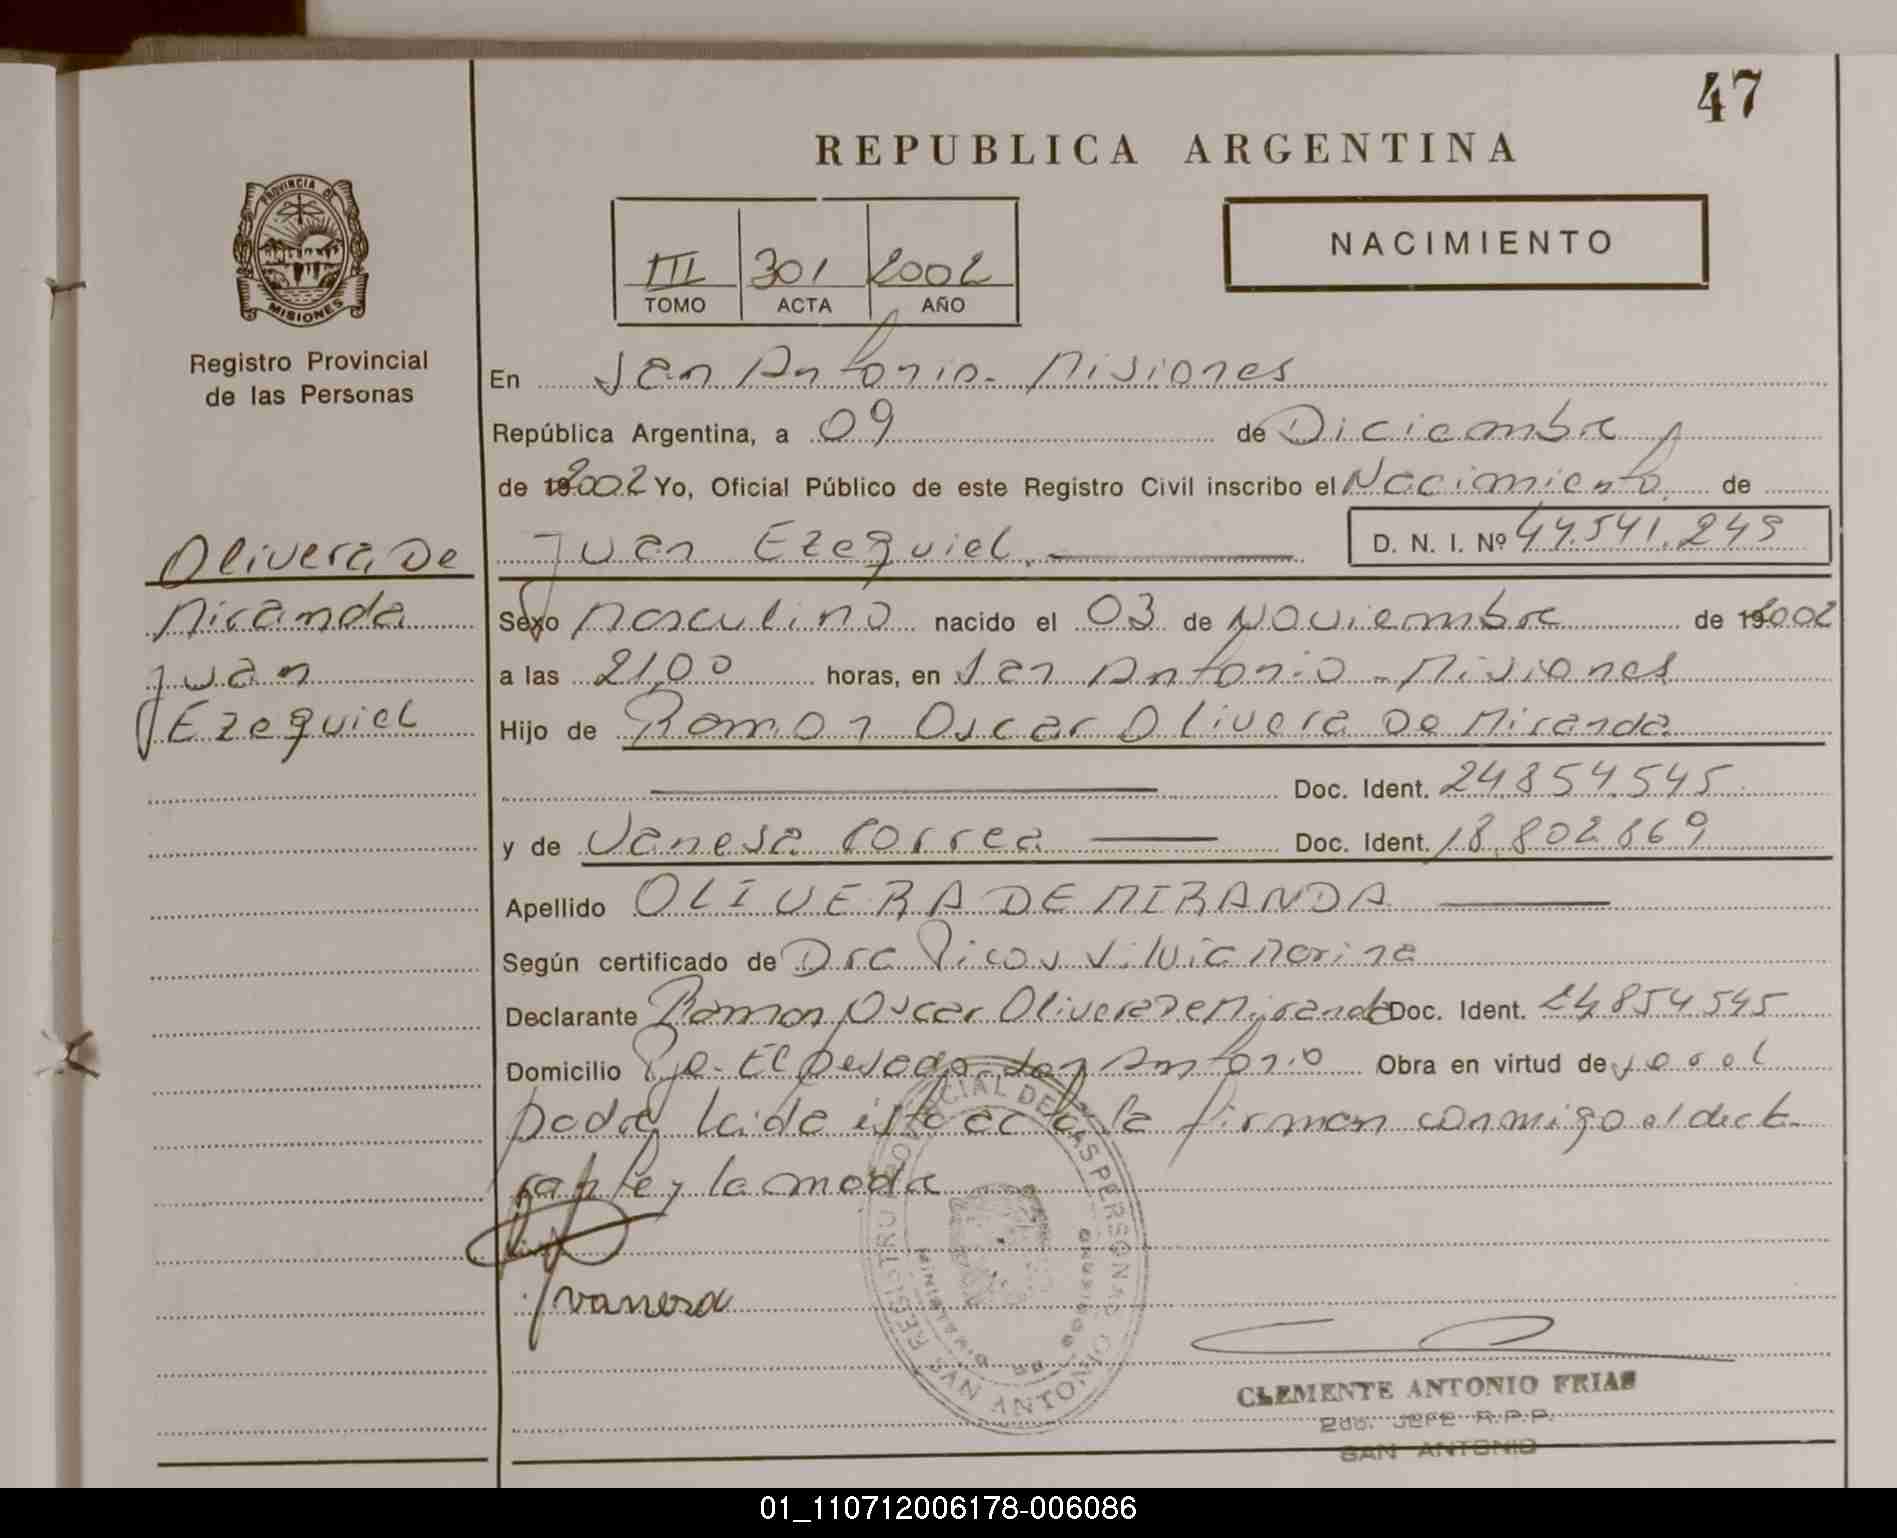 47
REPUBLICA ARGENTINA
PROVINCIA DE
MISIONES
Registro Provincial
de las Personas
III 301 2002
TOMO ACTA AÑO
NACIMIENTO
En San Antonio - Misiones
República Argentina, a 09 de Diciembre
de 2002 Yo, Oficial Público de este Registro Civil inscribo el Nacimiento de
Juan Ezequiel. D. N. I. Nº 44.541.249
Olivera De
Miranda
Juan
Ezequiel
Sexo Masculino nacido el 03 de Noviembre de 2002
a las 21,00 horas, en San Antonio - Misiones
Hijo de Ramon Oscar Olivera De Miranda
Doc. Ident. 24.854.545
y de Vanesa Correa Doc. Ident. 18.802.869
Apellido OLIVERA DE MIRANDA
Según certificado de Dra Picos Silvia Marina
Declarante Ramon Oscar Olivera De Miranda Doc. Ident. 24854545
Domicilio Pje. El Pesado San Antonio Obra en virtud de ser el
padre leida esta acta la firman conmigo el decla-
rante y la madre
vanesa
REGISTRO PROVINCIAL DE LAS PERSONAS
SAN ANTONIO
CLEMENTE ANTONIO FRIAS
2do. JEFE R.P.P.
SAN ANTONIO
01_110712006178-006086